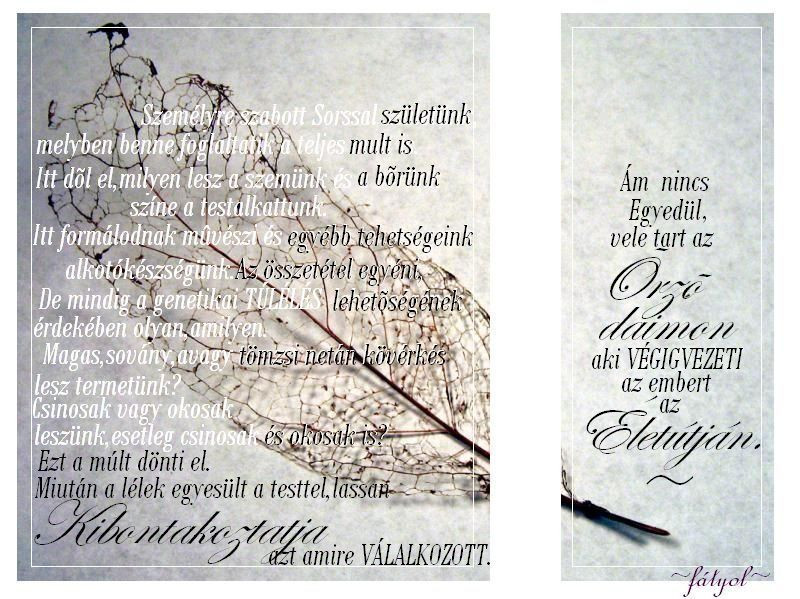 Személyre szabott Sorssal születünk,
melyben benne foglaltatik a teljes mult is
Itt dõl el,milyen lesz a szemünk és a bõrünk
színe a testalkattunk.
Itt formálodnak mûvészi és egyébb tehetségeink
alkotókészségünk.Az összetétel egyéni,
De mindig a genetikai TÚLÉLÉS lehetõségének
érdekében olyan,amilyen.
Magas,sovány,avagy tömzsi netán kövérkés
lesz termetünk?
Csinosak vagy okosak
leszünk,esetleg csinosak és okosak is?
Ezt a múlt dönti el.
Miután a lélek egyesült a testtel,lassan
Kibontakoztatja
azt amire VÁLALKOZOTT.
Ám nincs
Egyedül,
vele tart az
Õrzõ
daimon
aki VÉGIGVEZETI
az embert
az
Életútján.
~
~fátyol~